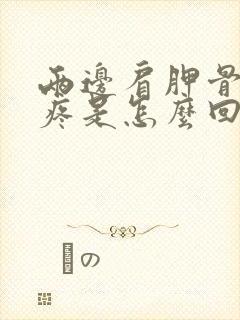 兩邊肩胛骨
疼是怎麼回
の